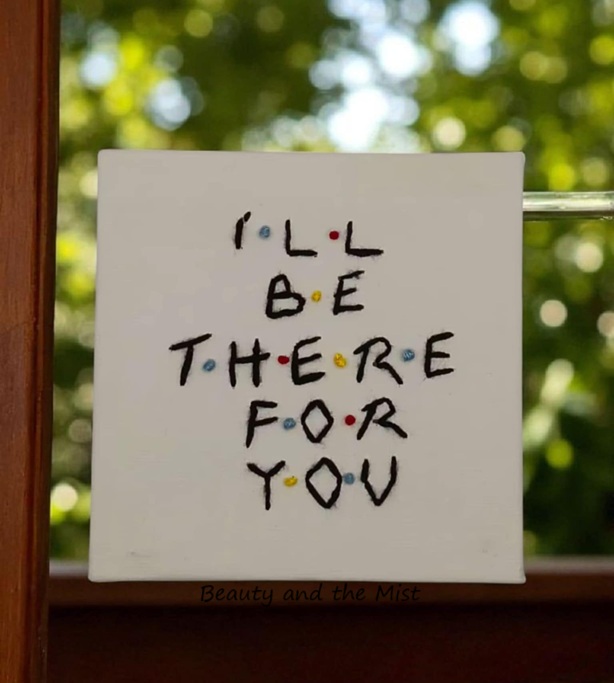 I'•L•L
B•E
T•H•E•R•E
F•O•R
Y•O•U
Beauty and the Mist